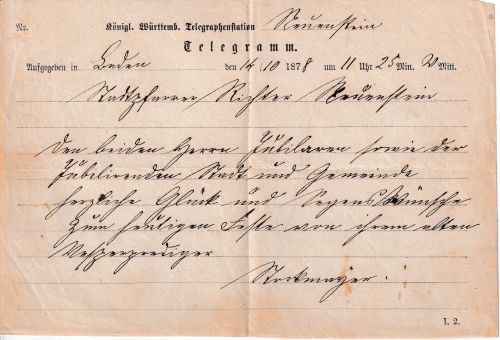 Nr.
Königl. Württemb. Telegraphenstation Neuenstein
Telegramm.
Aufgegeben in den 14/10 1878 um 11 Uhr 25 Min. V Mitt.
Stadtpfarrer Richter Neuenstein
Den beiden Herrn Jubilaren sowie der
Jubilirenden Stadt und Gemeinde
herzliche Glück und Segens Wünsche
zum heutigen Feste von ihrem alten
Vesperprediger
Stockmayer.
I. 2.